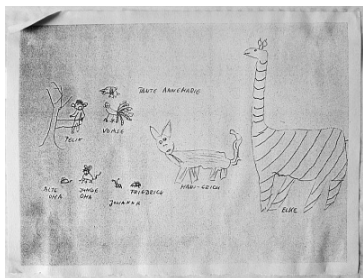 TANTE ANNEMARIE
FELIX
ALTE OMA
JUNGE OMA
JOHANNA
FRIEDRICH
HANS-ERICH
ELKE